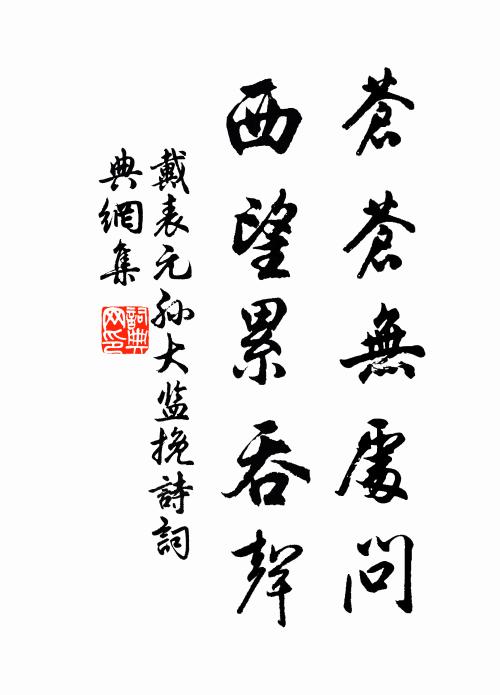 蒼蒼無處問
西望累吞聲
戴表元孫大监挽詩詞
典網集
詞典网印